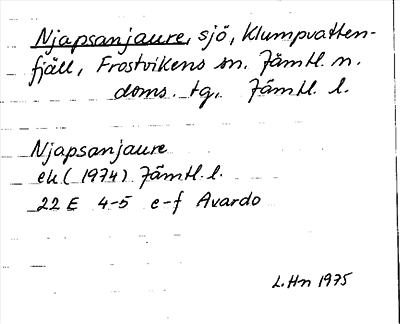 Njapsanjaure, sjö, Klumpvatten-
fjäll, Frostvikens sn. Jämtl. n.
doms. tg. Jämtl. l.
Njapsanjaure
ek (1974) Jämtl. l.
22 E 4-5 e-f Avardo
L. Hn 1975